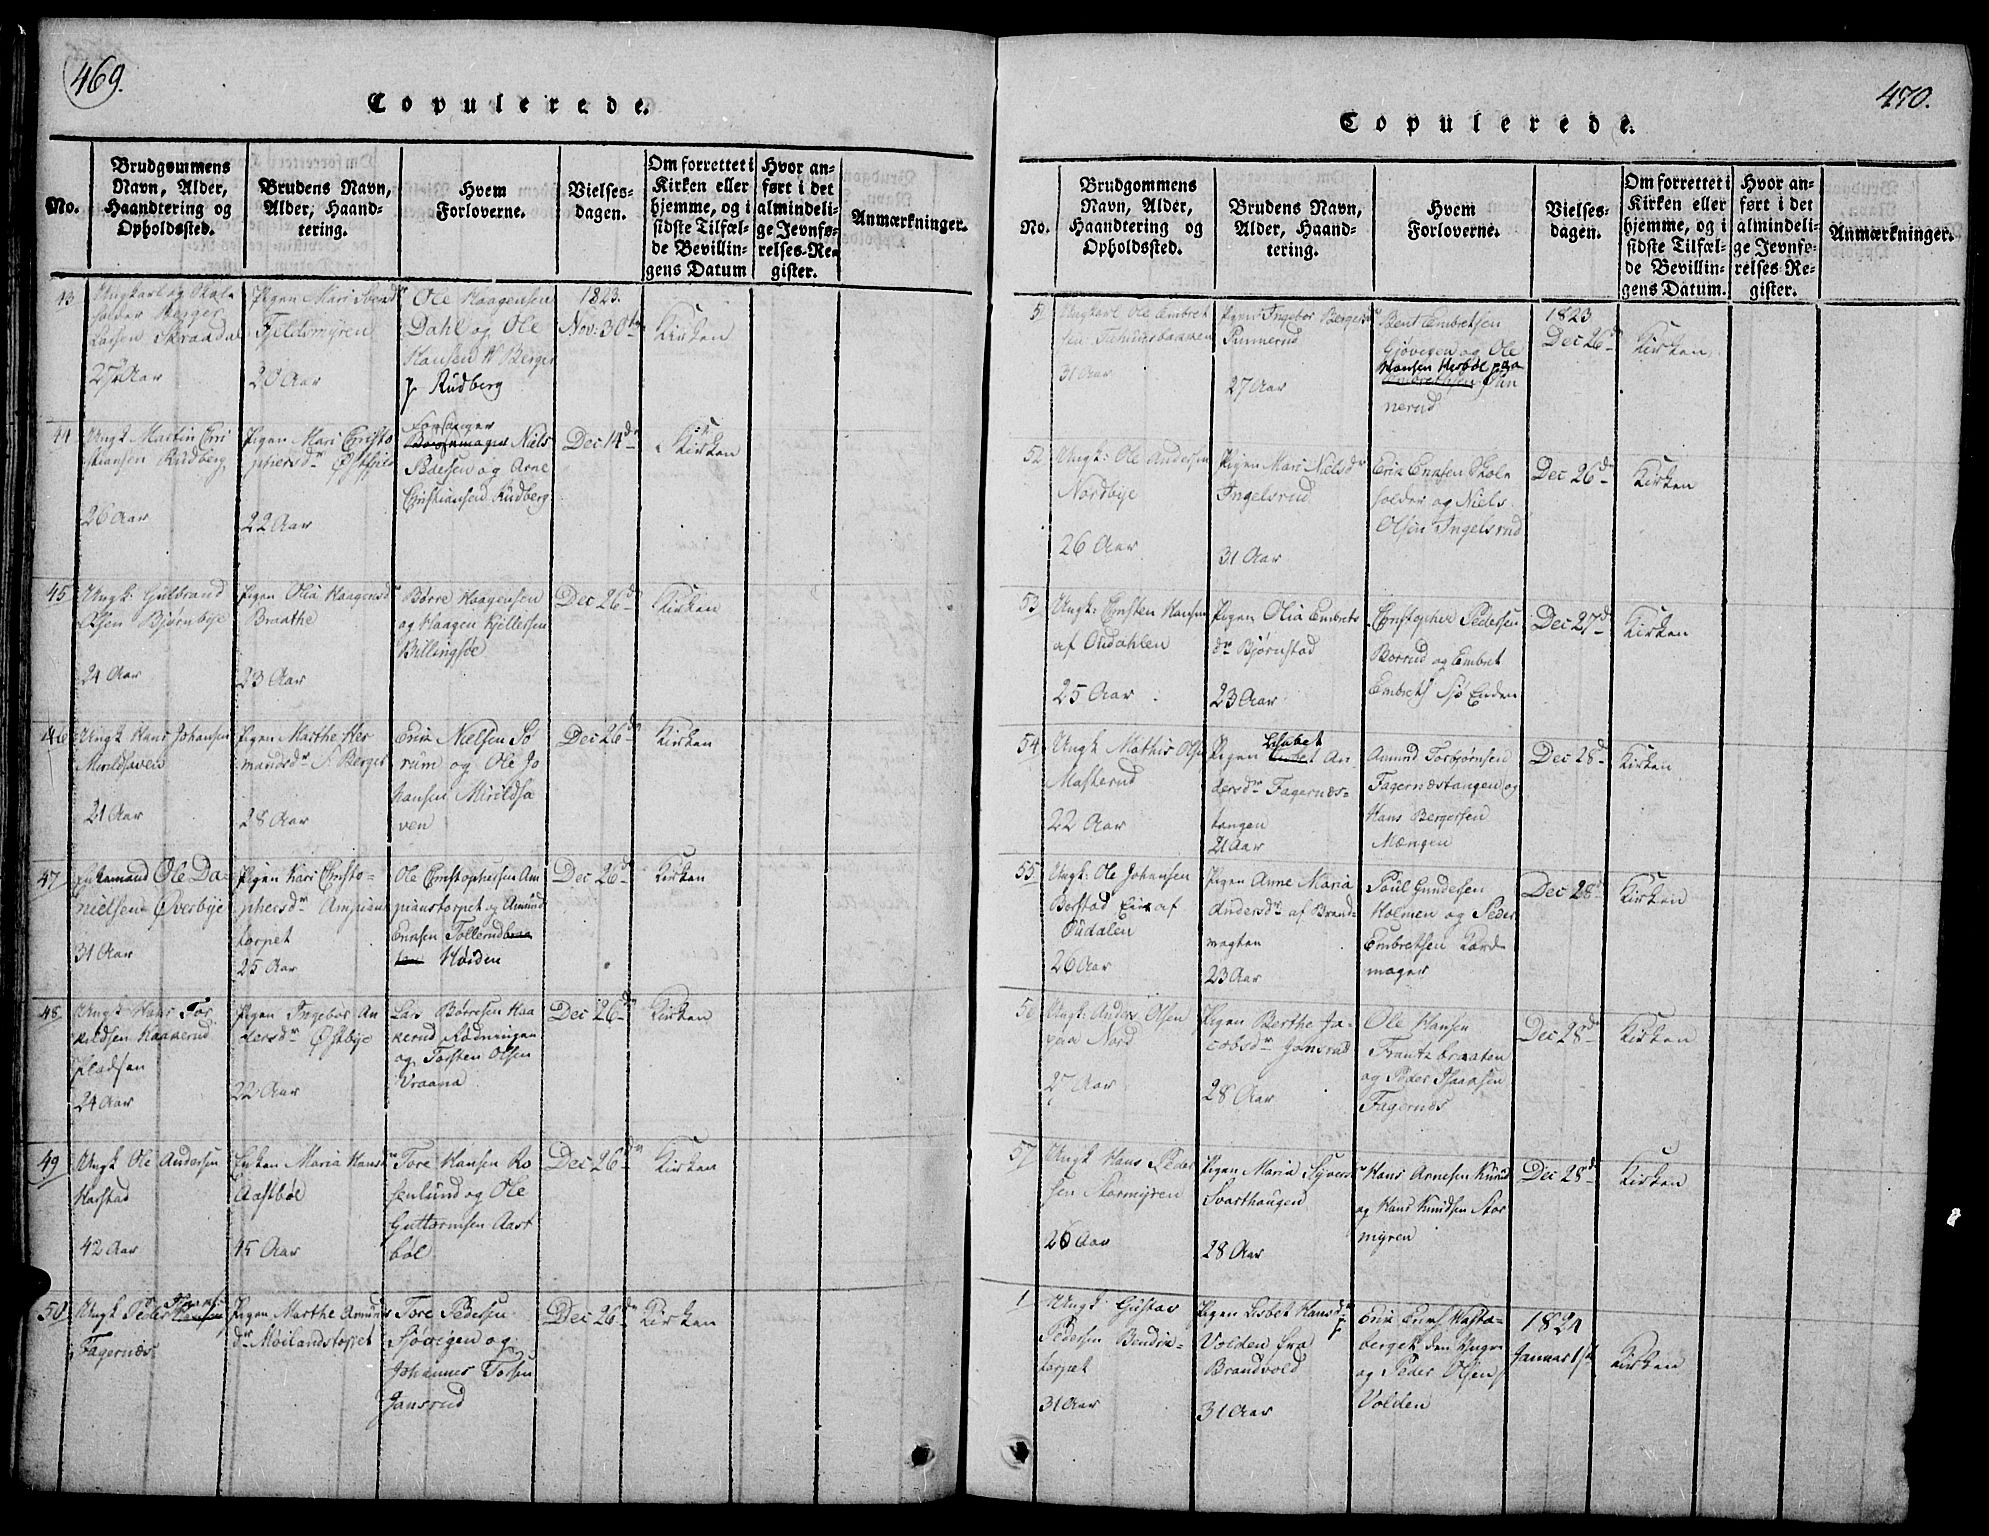 469.
Copulerede.
No.
Brudgommens
Navn, Alder,
Haandtering og
Opholdssted.
Brudens Navn,
Alder, Haand-
tering.
Hvem
Forloverne.
Vielses-
dagen.
Om forrettet i
Kirken eller
hjemme, og i
sidste Tilfæl-
de Bevillin-
gens Datum
Hvor an-
ført i det
almindeli-
ge Jevnfø-
relses-Re-
gister.
Anmærkninger.
43
Ungkarl og Skole
holder Berger
Larsen
27 Aar
Pigen Mari
Fjeldsmyren
20 Aar
Ole Haagensen
Dahl og Ole
Hansen N Berger
p. Rudberg
1823.
Nov: 30te
Kirken
44
Ungk Martin Cri
stiansen Rudberg
26 Aar
Pigen Mari Christo
phersdr
22 Aar
Forsanger
Niels
Pedersen og Arne
Christiansen Rudberg
Dec 14de
Kirken
45
Ungk: Guldbrand
Olsen Bjørnbye
24 Aar
Pigen Olia Haagensdr
Braathe
23 Aar
Børre Haagensen
og Haagen Kjeldsen
Billingsøe
Dec 26de
Kirken
46
Ungk Hans Johansen
21 Aar
Pigen Marthe Her
mandsdr S. Berger
28 Aar
Erik Nielsen So
rum og Ole Jo
hansen Mirildsa
ven
Dec 26de
Kirken
47
Enkemand Ole Da-
nielsen Øverbye
31 Aar
Pigen Kari Christo-
phersdr Ampians
torpet
25 Aar
Ole Christophersen Am
pianstorpet og Amund
Ericksen Tollerudbraa
ten Høiden
Dec 26de
Kirken
48
Ungk Hans Tor
kildsen Kaaterud
pladsen
24 Aar
Pigen Ingebor An
dersdr Østbye
22 Aar
Lars Børresen Kaa
terud Rødningen
og Torsten Olsen
Vraana
Dec 26de
Kirken
49
Ungk Ole Andersen
Harstad
42 Aar
Enken Maria Hansdr
Aastbøl
45 Aar
Tore Hansen Ro
senlund og Ole
Guttormsen Aast
bøl
Dec 26de
Kirken
50
Ungk Peder
Fagernæs
Pigen Marthe Amunds
dr Moilandstorpet
Tore Pedersen
Gjøvigen og
Johannes Torsen
Jansrud
Dec 26de
Kirken
470.
Copulerede.
No.
Brudgommens
Navn, Alder,
Haandtering og
Opholdssted.
Brudens Navn,
Alder, Haand-
tering.
Hvem
Forloverne.
Vielses-
dagen.
Om forrettet i
Kirken eller
hjemme, og i
sidste Tilfæl-
de Bevillin-
gens Datum.
Hvor an-
ført i det
almindeli-
ge Jevnfø-
relses-Re-
gister.
Anmærkninger.
5
Ungkarl Ole Embret
sen
31 Aar
Pigen Ingebor Bergersdr
Punnerud
27 Aar
Bent Embretsen
Gjøvigen og Ole
Hansen Herbøl paa
Embretsen Pun
nerud
1823
Dec 26de
Kirken
52
Ungk: Ole Andersen
Nordbye
26 Aar
Pigen Mari Nielsdr
Ingelsrud
31 Aar
Erik Ericksen Skole
holder og Niels
Olsen Ingelsrud
Dec 26de
Kirken
53
Ungk: Christen Hansen
af Oudahlen
25 Aar
Pigen Olia Embrets
dr Bjørnstad
23 Aar
Christopher Pedersen
Borrud og Embret
Embrets Sjø Enden
Dec 27de
Kirken
54
Ungk Mathis Olsen
Masterud
22 Aar
Lisabet
Pigen An-
dersdr Fagernæs-
tangen
21 Aar
Amund Torbjørnsen
Fagernæstangen og
Hans Bergersen
Mængen
Dec 28de
Kirken
55
Ungk: Ole Johansen
Borstad af
Oudalen
26 Aar
Pigen Anne Maria
Andersdr af Brand-
vagten
23 Aar
Poul Gundersen
Holmen og Peder
Embretsen Kord-
mager
Dec 28de
Kirken
56
Ungk: Anders Olsen
paa Nord
27 Aar
Pigen Berthe Ja-
cobsdr Jansrud
28 Aar
Ole Hansen
Frantzbraaten
og Peder Isaaksen
Fagernæs
Dec 28de
Kirken
57
Ungk Hans Peder
sen Stormyren
26 Aar
Pigen Maria Syversdr
Svarthaugen
28 Aar
Hans Arnesen Knud
og Hans Knudsen Stor
myren
Dec 28de
Kirken
1
Ungk: Gustav
Pedersen Bendik-
torpet
31 Aar
Pigen Lisbet Hansdr
Volden fra
Brandvold
31 Aar
Erik Ericks Hasta-
berget den Yngre
og Peder Olsen
Volden
1824
Januar 1st
Kirken